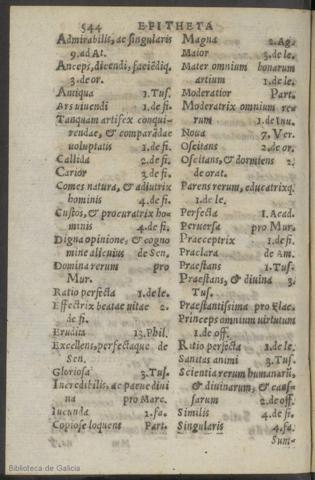 544 EPITHETA
Admirabilis, ac singularis
9. ad At.
Anceps, dicendi, faciẽdiq.
3. de or.
Antiqua 1. Tus.
Ars viuendi 1. de fi.
Tanquam artifex conqui-
rendae, & comparãdae
voluptatis 1. de fi.
Callida 2. de fi.
Carior 3. de fi.
Comes natura, & adiutrix
hominis 4. de fi.
Custos, & procuratrix ho-
minis 4. de fi.
Digna opinione, & cogno
mine alicuius de Sen.
Domina rerum pro
Mur.
Ratio perfecta 1. de le.
Effectrix beatae vitae 2.
de fi.
Erudita 13. Phil.
Excellens, perfectaque de
Sen.
Gloriosa 3. Tus.
Incredibilis, ac paene diui
na pro Marc.
Iucunda 1. fa.
Copiose loquens Part.
Magna 2. Ag.
Maior 3. de le.
Mater omnium bonarum
artium 1. de le.
Moderatior Part.
Moderatrix omnium re-
rum 1. de Inu.
Noua 7. Ver.
Oscitans 2. de or.
Oscitans, & dormiens 2.
de orat.
Parens rerum, educatrixq.
1. de le.
Perfecta 1. Acad.
Peruersa pro Mur.
Praeceptrix 1. de fi.
Praeclara de Am.
Praestans 1. Tus.
Praestans, & diuina 3.
Tus.
Praestantissima pro Flac.
Princeps omnium virtutum
1. de off.
Ratio perfecta 1. de le.
Sanitas animi 3. Tus.
Scientia rerum humanarũ,
& diuinarum, & caus-
sarum 2. de off.
Similis 4. de fi.
Singularis 4. fa.
Sum-
Biblioteca de Galicia